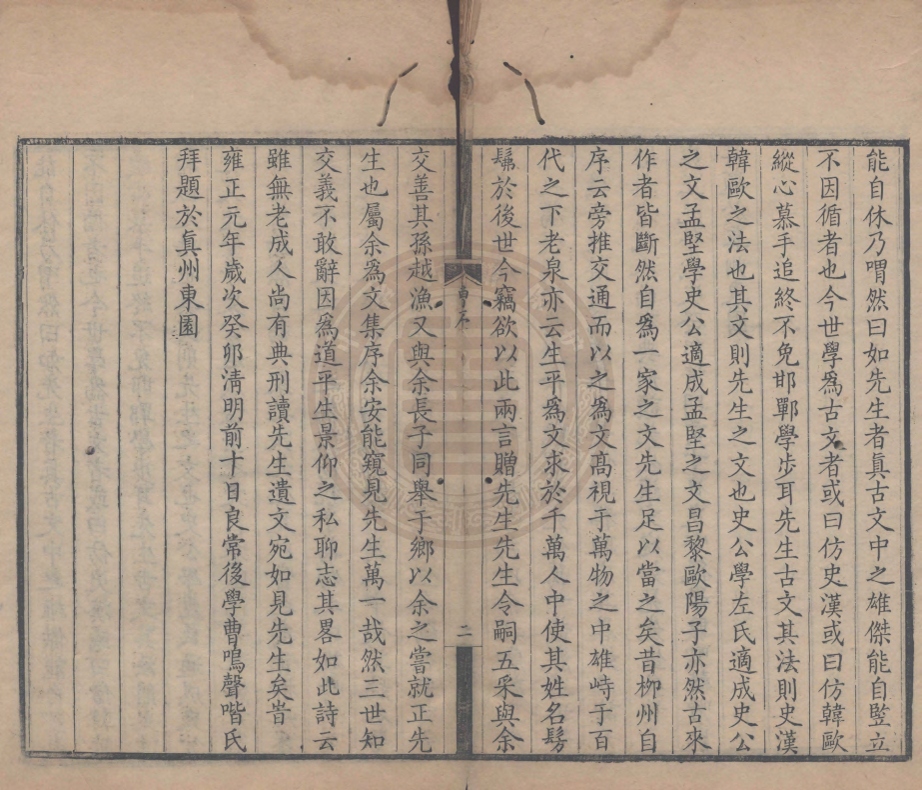 能自休乃喟然曰如先生者眞古文中之雄傑能自豎立
不因循者也今世學爲古文者或曰仿史漢或曰仿韓歐
縱心慕手追終不免邯鄲學步耳先生古文其法則史漢
韓歐之法也其文則先生之文也史公學左氏適成史公
之文孟堅學史公適成孟堅之文昌黎歐陽子亦然古來
作者皆斷然自爲一家之文先生足以當之矣昔柳州自
序云旁推交通而以之爲文髙視于萬物之中雄峙于百
代之下老泉亦云生平爲文求於千萬人中使其姓名髣
髴於後世今竊欲以此兩言贈先生先生令嗣五采與余
曹序
二
交善其孫越漁又與余長子同舉于鄉以余之嘗就正先
生也屬余爲文集序余安能窺見先生萬一哉然三世知
交義不敢辭因爲道平生景仰之私聊志其畧如此詩云
雖無老成人尚有典刑讀先生遺文宛如見先生矣旹
雍正元年歲次癸卯清明前十日良常後學曹鳴聲喈氏
拜題於眞州東園